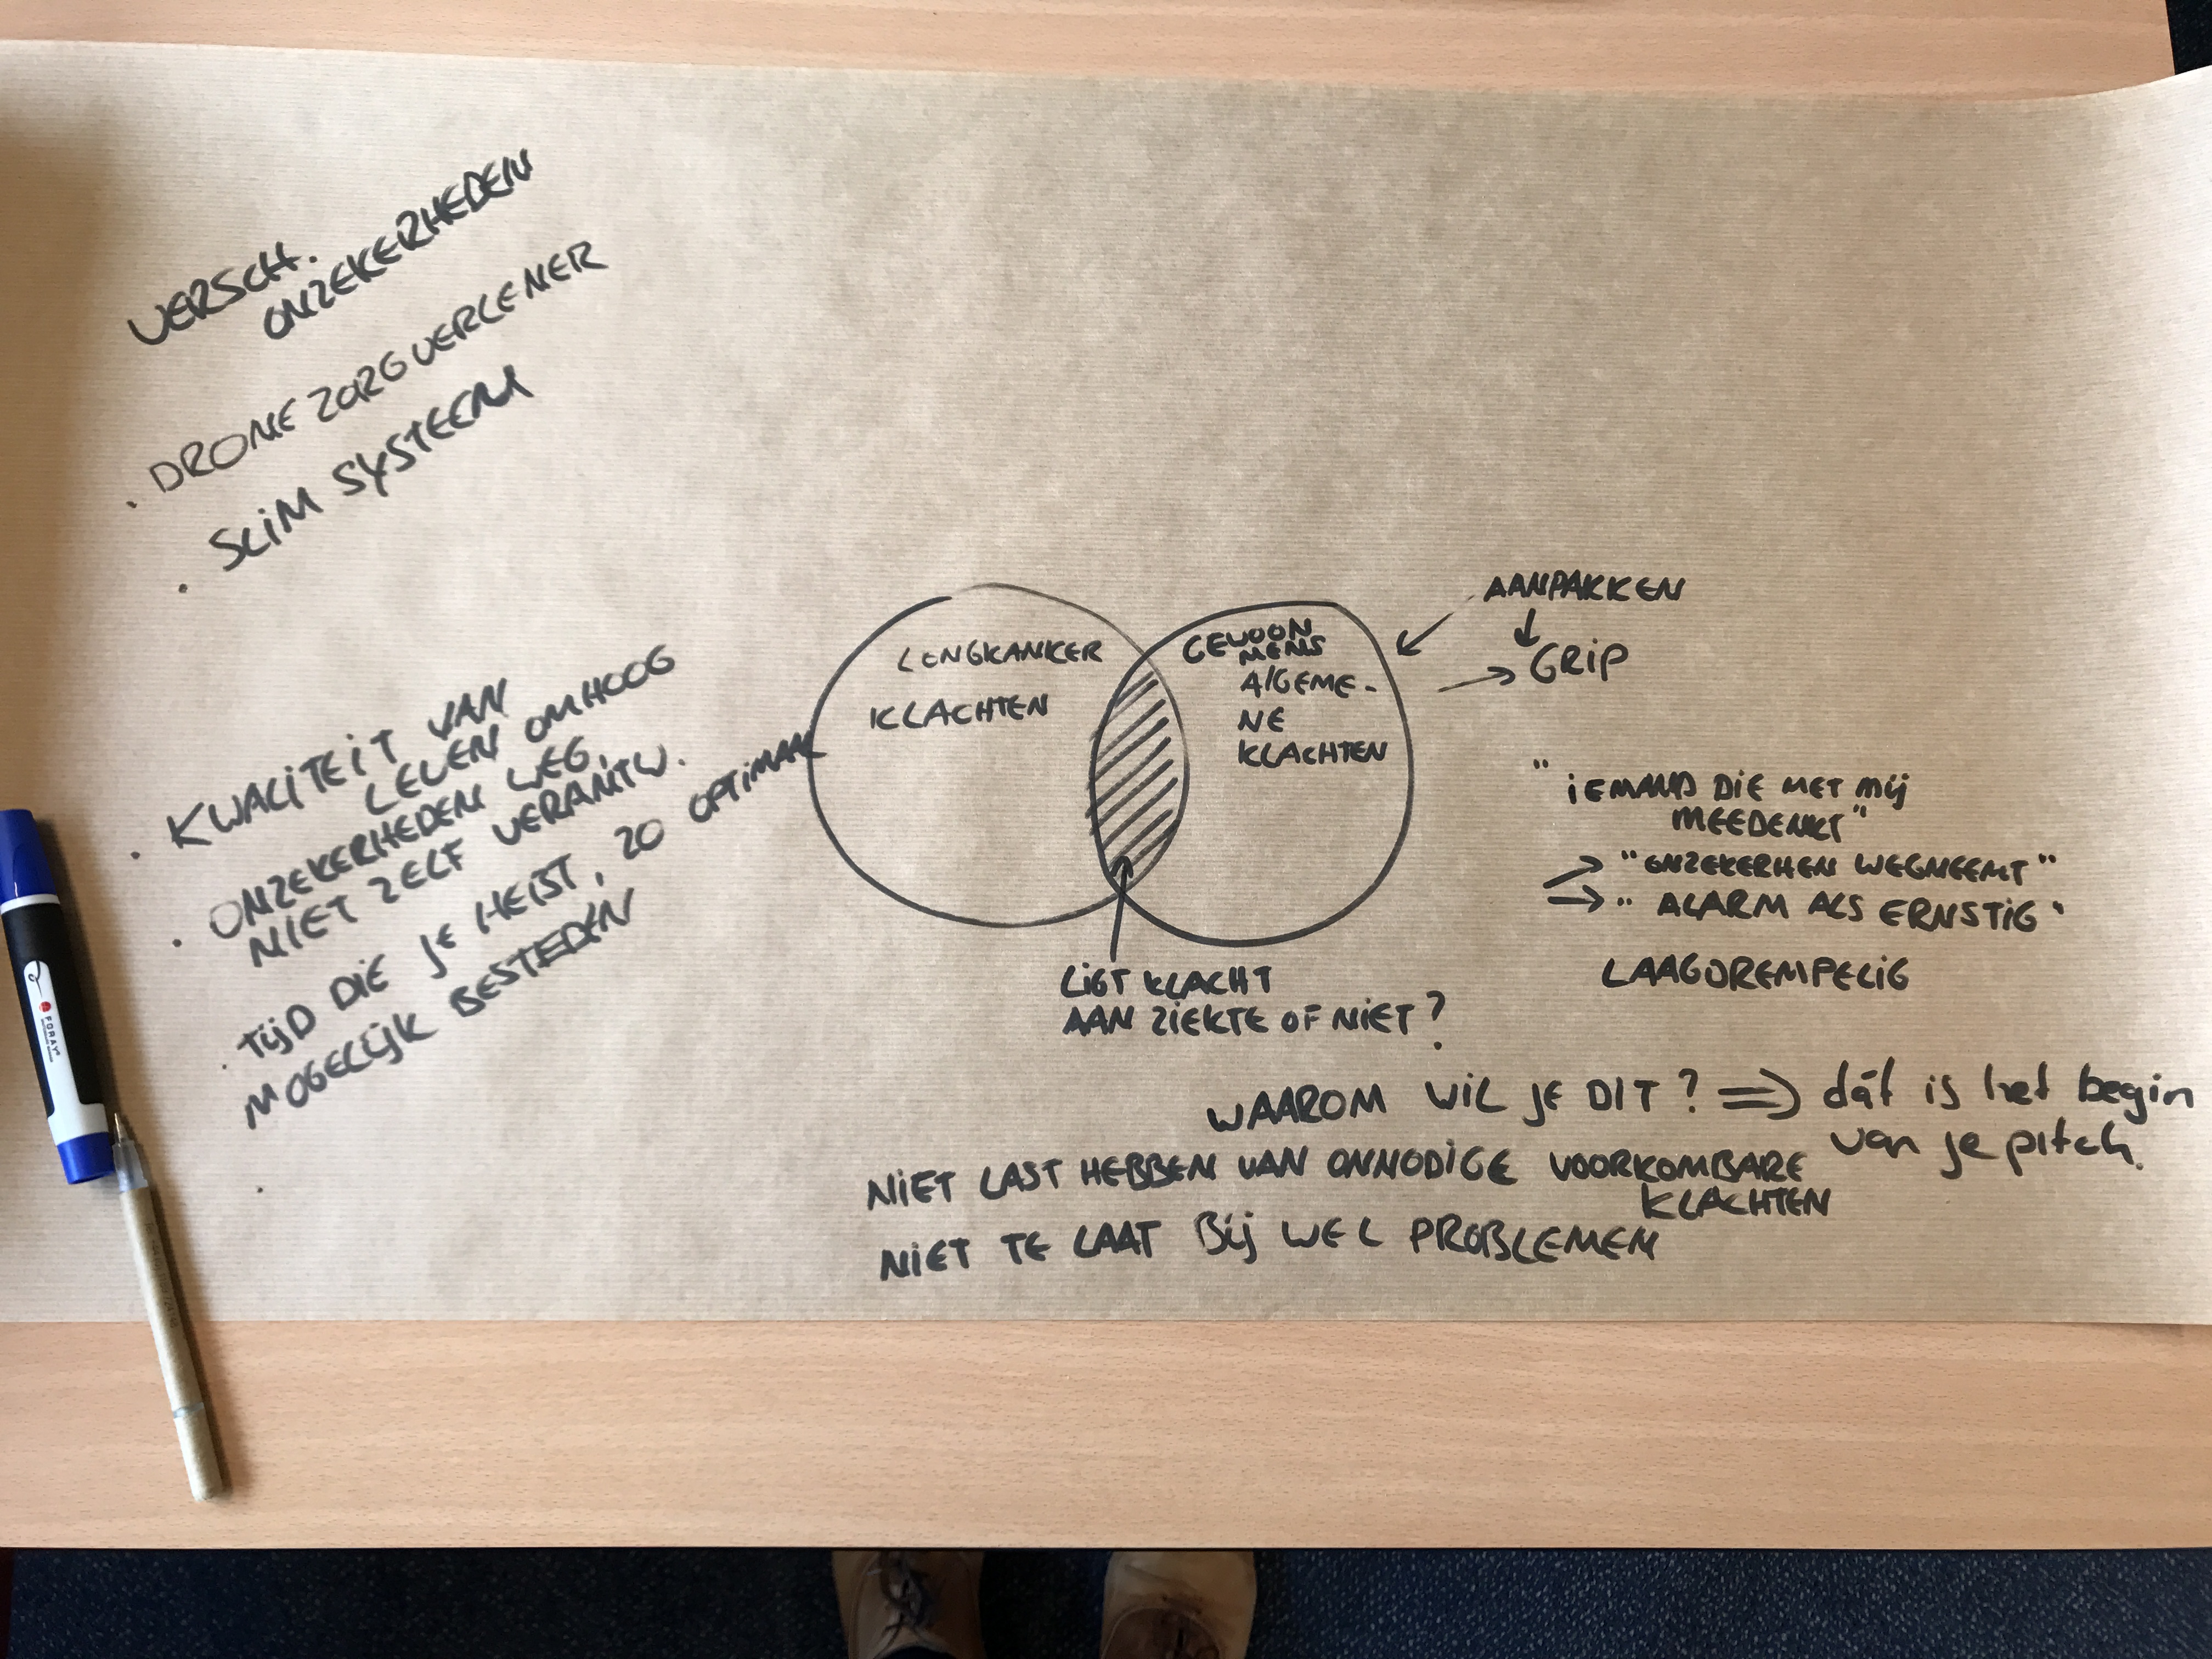 VERSCH.
ONZEKERHEDEN
. DRONE ZORGVERLENER
. SLIM SYSTEEM
. KWALITEIT VAN
LEVEN OMHOOG
. ONZEKERHEDEN WEG,
NIET ZELF VERANTW.
. TIJD DIE JE HEBT, ZO OPTIMAAL
MOGELIJK BESTEDEN
.
LONGKANKER
KLACHTEN
GEWOON
MENS
AlGEME-
NE
KLACHTEN
AANPAKKEN
↓
→ GRIP
LIGT KLACHT
AAN ZIEKTE OF NIET?
"IEMAND DIE MET MIJ
MEEDENKT"
→ "ONZEKERHEN WEGNEEMT"
→ "ALARM ALS ERNSTIG"
LAAGDREMPELIG
WAAROM WIL JE DIT? => dát is het begin
van je pitch.
NIET LAST HEBBEN VAN ONNODIGE VOORKOMBARE
KLACHTEN
NIET TE LAAT BIJ WEL PROBLEMEN
FORAY